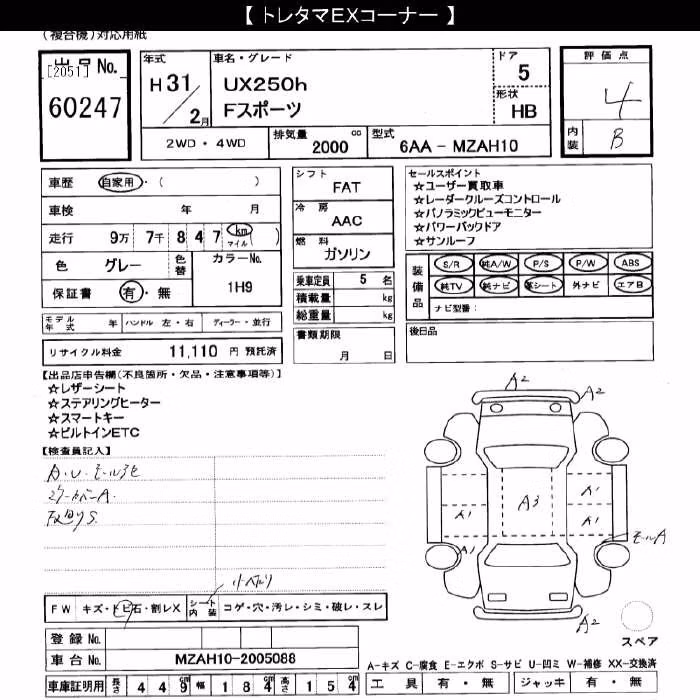 【 トレタマEXコーナー 】
(複合機)対応用紙
出品No.
[2051]
60247
年式
H 31/2月
車名・グレード
UX250h
Fスポーツ
ドア
5
形状
HB
評価点
4
内装
B
2WD・4WD
排気量
2000 cc
型式
6AA - MZAH10
車歴 自家用・( )
車検 年 月
走行 9万 7千 8 4 7 km マイル ( )
色 グレー 色替 カラーNo.
1H9
保証書 有・無
シフト
FAT
冷房
AAC
燃料
ガソリン
乗車定員 5 名
積載量 kg
総重量 kg
書類期限
月 日
セールスポイント
☆ユーザー買取車
☆レーダークルーズコントロール
☆パノラミックビューモニター
☆パワーバックドア
☆サンルーフ
装備品
S/R 純A/W P/S P/W ABS
純TV 純ナビ 革シート 外ナビ エアB
ナビ型番:
後日品
モデル年式 年 ハンドル 左・右 ディーラー・並行
リサイクル料金 11,110 円 預託済
【出品店申告欄(不良箇所・欠品・注意事項等)】
☆レザーシート
☆ステアリングヒーター
☆スマートキー
☆ビルトインETC
【検査員記入】
A.U.
A.
S.
A2
A2
A3
A1
A1
A1
A1
A1
モールA
A2
スペア
FW キズ・トビ石・割レX
シート内装 コゲ・穴・汚レ・シミ・破レ・スレ
登録No.
車台No. MZAH10-2005088
車庫証明用 長さ 4 4 9 cm 幅 1 8 4 cm 高さ 1 5 4 cm
A-キズ C-腐食 E-エクボ S-サビ U-凹ミ W-補修 XX-交換済
工具 有・無 ジャッキ 有・無